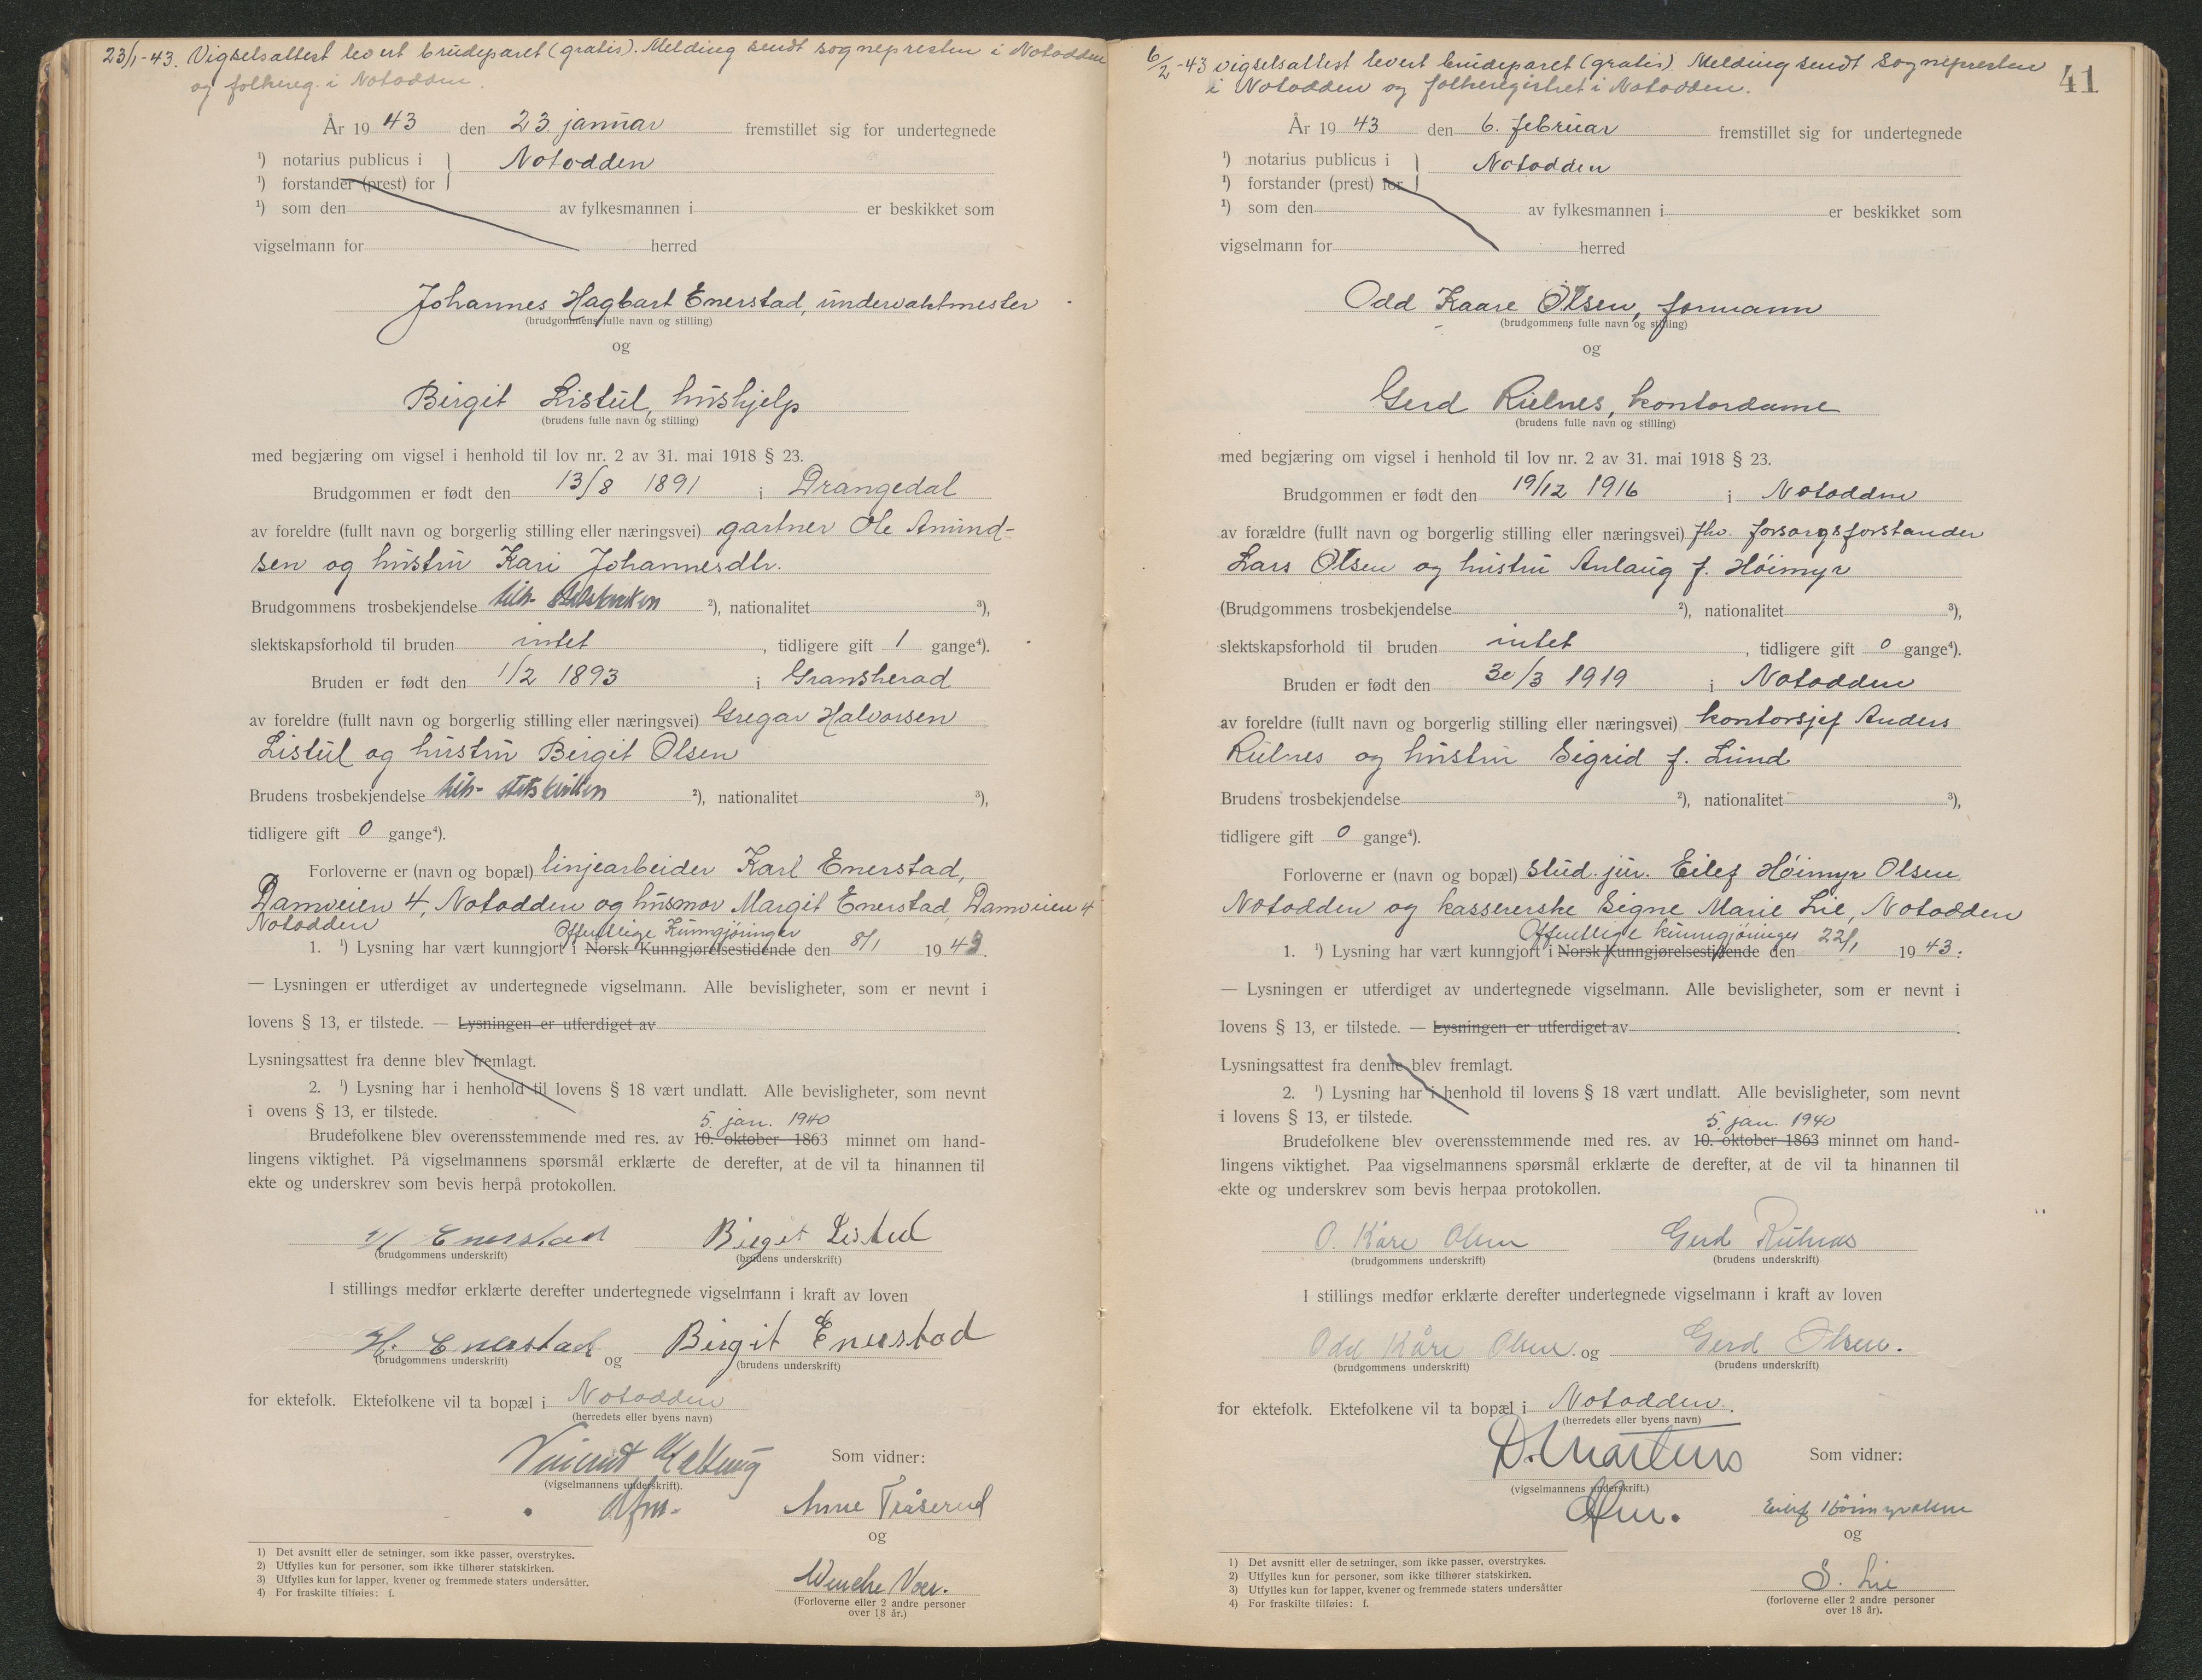 23/1-43. Vigselsattest levert brudeparet (gratis). Melding sendt sognepresten i Notodden
og folkereg. i Notodden.
År 1943 den 23. januar fremstillet sig for undertegnede
¹) notarius publicus i } Notodden
¹) forstander (prest) for
¹) som den av fylkesmannen i er beskikket som
vigselmann for herred
Johannes Hagbart Enerstad, undervaktmester
(brudgommens fulle navn og stilling)
og
Birgit Listul, hushjelp
(brudens fulle navn og stilling)
med begjæring om vigsel i henhold til lov nr. 2 av 31. mai 1918 § 23.
Brudgommen er født den 13/8 1891 i Drangedal
av foreldre (fullt navn og borgerlig stilling eller næringsvei) gartner Ole Amund-
sen og hustru Kari Johannesdtr.
Brudgommens trosbekjendelse tilh. statskirken ²), nationalitet ³),
slektskapsforhold til bruden intet , tidligere gift 1 gange⁴).
Bruden er født den 1/2 1893 i Gransherad
av foreldre (fullt navn og borgerlig stilling eller næringsvei) Gregar Halvorsen
Listul og hustru Birgit Olsen
Brudens trosbekjendelse tilh. statskirken ²), nationalitet ³),
tidligere gift 0 gange⁴).
Forloverne er (navn og bopæl) linjearbeider Karl Enerstad,
Damveien 4, Notodden og husmor Margit Enerstad, Damveien 4
Notodden
Offentlige Kunngjøringer
1. ¹) Lysning har vært kunngjort i Norsk Kunngjørelsestidende den 8/1 1943.
— Lysningen er utferdiget av undertegnede vigselmann. Alle bevisligheter, som er nevnt i
lovens § 13, er tilstede. — Lysningen er utferdiget av
Lysningsattest fra denne blev fremlagt.
2. ¹) Lysning har i henhold til lovens § 18 vært undlatt. Alle bevisligheter, som nevnt
i ovens § 13, er tilstede.
5. jan. 1940
Brudefolkene blev overensstemmende med res. av 10. oktober 1863 minnet om hand-
lingens viktighet. På vigselmannens spørsmål erklærte de derefter, at de vil ta hinannen til
ekte og underskrev som bevis herpå protokollen.
H Enerstad Birgit Listul
(brudgommens underskrift) (brudens underskrift)
I stillings medfør erklærte derefter undertegnede vigselmann i kraft av loven
H. Enerstad og Birgit Enerstad
(brudgommens underskrift) (brudens underskrift)
for ektefolk. Ektefolkene vil ta bopæl i Notodden
(herredets eller byens navn)
Som vidner:
(vigselmannens underskrift).
Anne Tråserud
og
Wenche Voer.
(Forloverne eller 2 andre personer
over 18 år.)
1) Det avsnitt eller de setninger, som ikke passer, overstrykes.
2) Utfylles kun for personer, som ikke tilhører statskirken.
3) Utfylles kun for lapper, kvener og fremmede staters undersåtter.
4) For fraskilte tilføies: f.
41
6/2-43 vigselsattest levert brudeparet (gratis) Melding sendt sognepresten
i Notodden og folkeregistret i Notodden.
År 1943 den 6. februar fremstillet sig for undertegnede
¹) notarius publicus i } Notodden
¹) forstander (prest) for
¹) som den av fylkesmannen i er beskikket som
vigselmann for herred
Odd Kaare Olsen, formann
(brudgommens fulle navn og stilling)
og
Gerd Rulnes, kontordame
(brudens fulle navn og stilling)
med begjæring om vigsel i henhold til lov nr. 2 av 31. mai 1918 § 23.
Brudgommen er født den 19/12 1916 i Notodden
av forældre (fullt navn og borgerlig stilling eller næringsvei) fhv. forsorgsforstander
Lars Olsen og hustru Anlaug f. Høimyr
(Brudgommens trosbekjendelse ²), nationalitet ³),
slektskapsforhold til bruden intet , tidligere gift 0 gange⁴).
Bruden er født den 30/3 1919 i Notodden
av foreldre (fullt navn og borgerlig stilling eller næringsvei) kontorsjef Anders
Rulnes og hustru Sigrid f. Lund
Brudens trosbekjendelse ²), nationalitet ³),
tidligere gift 0 gange⁴).
Forloverne er (navn og bopæl) stud. jur. Eilef Höimyr Olsen
Notodden og kassererske Signe Marie Lie, Notodden
Offentlige kunngjøringer
1. ¹) Lysning har vært kunngjort i Norsk Kunngjørelsestidende den 22/1 1943.
— Lysningen er utferdiget av undertegnede vigselmann. Alle bevisligheter, som er nevnt i
lovens § 13, er tilstede. — Lysningen er utferdiget av .
Lysningsattest fra denne blev fremlagt.
2. ¹) Lysning har i henhold til lovens § 18 vært undlatt. Alle bevisligheter, som nevnt
i lovens § 13, er tilstede.
5. jan. 1940
Brudefolkene blev overensstemmende med res. av 10. oktober 1863 minnet om hand-
lingens viktighet. Paa vigselmannens spørsmål erklærte de derefter, at de vil ta hinannen til
ekte og underskrev som bevis herpaa protokollen.
O. Kåre Olsen Gerd Rulnes
(brudgommens underskrift) (brudens underskrift)
I stillings medfør erklærte derefter undertegnede vigselmann i kraft av loven
Odd Kåre Olsen og Gerd Olsen.
(brudgommens underskrift) (brudens underskrift)
for ektefolk. Ektefolkene vil ta bopæl i Notodden.
(herredets eller byens navn)
D. Martens Som vidner:
(vigselmannens underskrift.)
Eilef Höimyr Olsen
og
S. Lie
(forloverne eller 2 andre personer
over 18 år).
1) Det avsnitt eller de setninger, som ikke passer, overstrykes.
2) Utfylles kun for personer, som ikke tilhører statskirken.
3) Utfylles kun for lapper, kvener og fremmede staters undersåtter
4) For fraskilte tilføies: f.